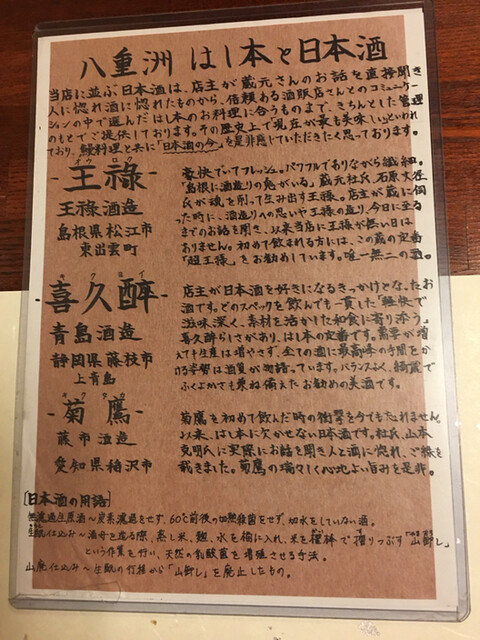 八重洲 はし本と日本酒
当店に並ぶ日本酒は、店主が蔵元さんのお話を直接聞き
人に惚れ酒に惚れたものから、信頼ある酒販店さんとのコミュニケー
ションの中で選んだはし本のお料理に合うものまで、きちんとした管理
のもとでご提供しております。その歴史上で現在が最も美味しいといわれ
ており、鰻料理と共に「日本酒の今」を是非感じていただきたく思っております。
オウロク
-王祿-
王祿酒造
島根県松江市
東出雲町
豪快でいてフレッシュ。パワフルでありながら繊細。
「島根に酒造りの鬼がいる」蔵元杜氏 石原丈径
氏が魂を削って生み出す王祿。店主が蔵に伺
った時に、酒造りへの思いや王祿の造り、今日に至る
までのお話を聞き、以来当店に王祿が無い日は
ありません。初めて飲まれる方には、この蔵の定番
「超王祿」をお勧めしています。唯一無二の酒。
キクヨイ
-喜久醉-
青島酒造
静岡県藤枝市
上青島
店主が日本酒を好きになるきっかけとなったお
酒です。どのスペックを飲んでも一貫した「軽快で
滋味深く、素材を活かした和食に寄り添う」
喜久醉らさがあり、はし本の定番です。需要が増
えても生産は増やさず、全ての酒に最高峰の手間をか
ける姿勢は酒質が物語っています。バランスよく、綺麗で
ふくよかさも兼ね備えたお勧めの美酒です。
キクタカ
-菊鷹-
藤市酒造
愛知県稲沢市
菊鷹を初めて飲んだ時の衝撃を今でも忘れません。
以来、はし本に欠かせない日本酒です。杜氏、山本
克明氏に実際にお話を聞き人と酒に惚れ、ご縁を
戴きました。菊鷹の瑞々しく心地よい旨みを是非。
[日本酒の用語]
無濾過生原酒～炭素濾過をせず、60℃前後の加熱殺菌をせず、加水をしていない酒。
生酛仕込み～酒母を造る際、蒸し米、麹、水を桶に入れ、米を櫂棒で摺りつぶす「山卸し」
という作業を行い、天然の乳酸菌を増殖させる手法。
山廃仕込み～生酛の行程から「山卸し」を廃止したもの。